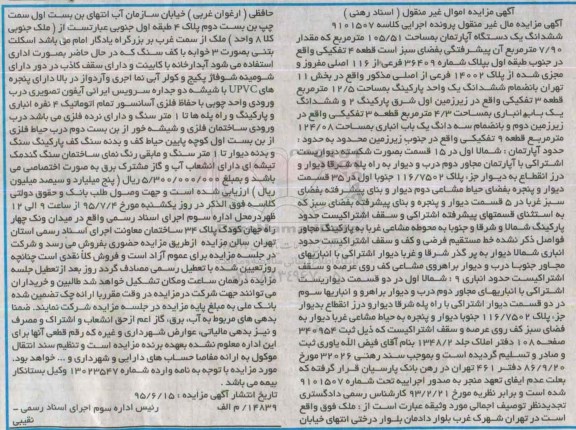 آگهی مزایده اموال غیر منقول ( اسناد رهنی )
آگهی مزایده مال غیر منقول پرونده اجرایی کلاسه 9101507
ششدانگ یک دستگاه آپارتمان بمساحت 105/51 مترمربع که مقدار
7/90 مترمربع آن پیشرفتگی بفضای سبز است قطعه 4 تفکیکی واقع
در جنوب طبقه اول بپلاک شماره 36409 فرعی از 116 اصلی مفروز و
مجزی شده از پلاک 14002 فرعی از اصلی مذکور واقع در بخش 11
تهران بانضمام ششدانگ یک واحد پارکینگ بمساحت 12/5 مترمربع
قطعه 3 تفکیکی واقع در زیرزمین اول شرق پارکینگ 2 و ششدانگ
یک باب انباری بمساحت 4/3 مترمربع قطعه 3 تفکیکی واقع در
زیرزمین دوم و بانضمام سه دانگ یک باب انباری بمساحت 124/08
مترمربع قطعه 9 تفکیکی واقع در جنوب زیرزمین محدود به حدود :
حدود آپارتمان : شمالا اول در 15 قسمت بصورت شکسته دیواریست
اشتراکی با آپارتمان مجاور دوم درب و دیوار به راه پله شرقا دیوار و
درز انقطاع به دیوار جز، پلاک 116/7502 جنوبا اول در 35 قسمت
دیوار و پنجره بفضای حیاط مشاعی دوم دیوار و بنای پیشرفته بفضای
سبز غربا در 5 قسمت دیوار و پنجره و بنای پیشرفته بفضای سبز که
به استثنای قسمتهای پیشرفته اشتراکی و سقف اشتراکیست حدود
پارکینگ شمالا و شرقا و جنوبا به محوطه مشاعی غربا به پارکینگ مجاور
فواصل ذکر نشده خط مستقیم فرضی و کف و سقف اشتراکیست حدود
انباری شمالا دیوار به پر گذر شرقا و غربا دیوار اشتراکی با انباریهای
مجاور جنوبا درب و دیوار براهروی مشاعی کف روی عرصه و سقف
اشتراکیست حدود انباری 9 : شمالا اول در دو قسمت دیواریست
اشتراکی با انباریهای مجاور دوم درب و دیوار براهرو و انباریها سوم
در دو قسمت دیوار اشتراکی با راه پله شرقا دیوار و درز انقطاع بدیوار
جز، پلاک 116/7502 جنوبا دیوار و پنجره به حیاط مشاعی غربا دیوار به
فضای سبز کف روی عرصه و سقف اشتراکیست که ذیل ثبت 340954
صفحه 108 دفتر املاک جلد 1348/2 بنام آقای فیض الله یاوری ثبت
و صادر و تسلیم گردیده است و بموجب سند رهنی 32026 مورخ
86/9/20 دفتر 461 تهران در رهن بانک پارسیان قرار گرفته که
بعلت عدم ایفای تعهد منجر به صدور اجراییه تحت شماره 9101507
شده است و برابر نظریه مورخ 93/2/21 کارشناس رسمی دادگستری
تجدیدنظر توصیف اجمالی مورد وثیقه عبارت است از : ملک فوق واقع
است در تهران شهرک غرب بلوار دادمان بلوار درختی انتهای خیابان
حافظی ( ارغوان غربی ) خیابان سازمان آب انتهای بن بست اول سمت
چپ بن بست دوم پلاک 4 طبقه اول جنوبی عبارتست از ( ملک جنوبی
کلا 8 واحد ) ملک از سمت غرب بر بزرگراه یادگار امام می باشد اسکلت
بتنی بصورت 3 خوابه با کف سنگ که در حال حاضر بصورت اداری
استفاده می شود آبدارخانه با کابینت و دارای سقف کاذب در دور دارای
شومینه شوفاژ پکیج و کولر آبی نما اجری وآردواز در بالا دارای پنجره
های UPVC با شیشه دو جداره سرویس ایرانی آیفون تصویری درب
ورودی واحد چوبی با حفاظ فلزی آسانسور تمام اتوماتیک 4 نفره انباری
و پارکینگ و راه پله ها تا 1 متر سنگ و دارای نرده فلزی می باشد درب
ورودی ساختمان فلزی و شیشه خور از بن بست دوم درب حیاط فلزی
از بن بست اول کوچه پایین حیاط کف و بدنه سنگ کف پارکینگ سنگ
و بدنه دیوار تا 1 متر سنگ و مابقی رنگ نمای ساختمان سنگ گندمک
تیشه ای دارای انشعاب آب و گاز مشترک برق به صورت اختصاصی می
باشد و بمبلغ 5/300/000/000 ریال ( پنج میلیارد و سیصد میلیون
ریال ) ارزیابی شده است و جهت وصول طلب بانک و حقوق دولتی
کلاسه فوق الذکر در روز یکشنبه مورخ 95/7/4 از ساعت 9 الی 12
ظهردرمحل اداره سوم اجرای اسناد رسمی واقع در میدان ونک چهار
راه جهان کودک پلاک 34 ساختمان معاونت اجرای اسناد رسمی استان
تهران سالن مزایده ازطریق مزایده حضوری بفروش می رسد و شرکت
در جلسه مزایده برای عموم آزاد است و فروش کلا نقدی است چنانچه
روزتعیین شده با تعطیل رسمی مصادف گردد روز بعد ازتعطیل جلسه
مزایده درهمان ساعت ومکان تشکیل خواهد شد طالبین و خریداران
می توانند جهت شرکت درمزایده در وقت مقرربا ارائه چک تضمین شده
بانک ملی به مبلغ پایه مزایده در جلسه مزایده شرکت نمایند. ضمنا
بدهی های مربوط به آب، برق، گاز اعم ازحق انشعاب و اشتراک و مصرف
و نیز بدهی مالیاتی، عوارض شهرداری و غیره که رقم قطعی آنها برای
این اداره معلوم نشده بعهده برنده مزایده است و تنظیم سند انتقال
موکول به ارائه مفاصا حساب های دارایی و شهرداری و ... خواهد بود.
مورد مزایده با توجه به نامه وارده شماره 13023547 وکیل بستانکار
بیمه می باشد .
تاریخ انتشار آگهی مزایده : 95/6/15
14839/ م الف رئیس اداره سوم اجرای اسناد رسمی -
نقیبی